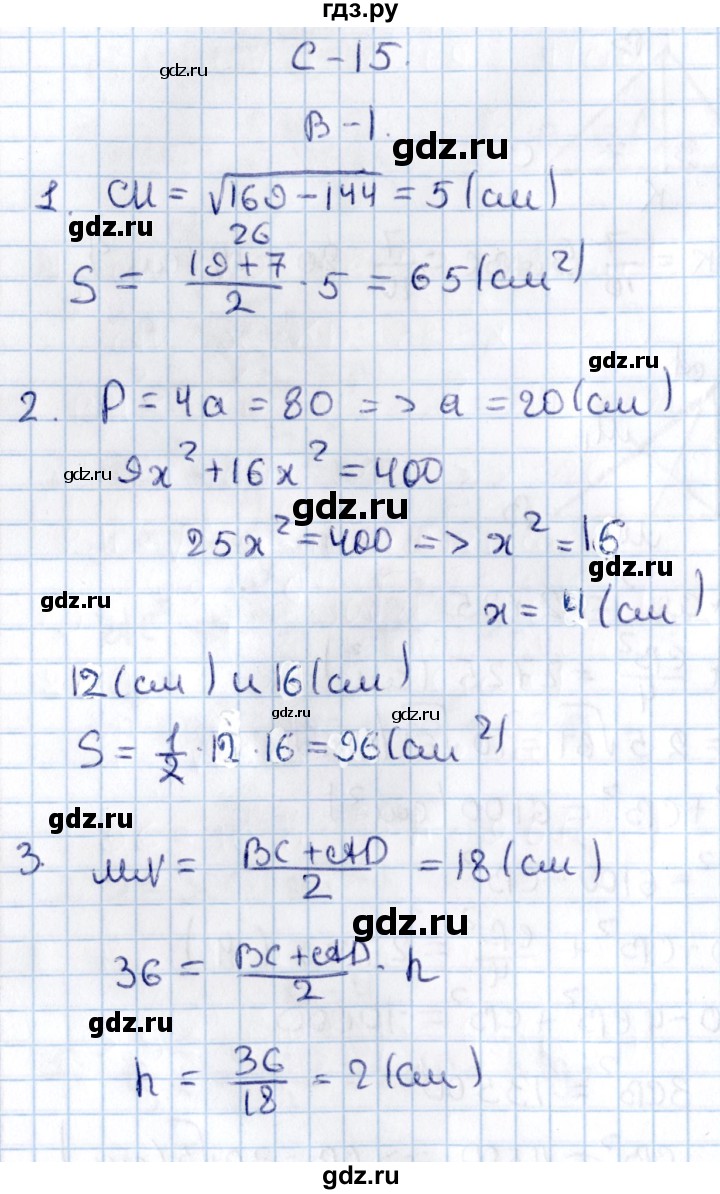 гдз.ру
С-15.
gdz.ru
В-1.
gdz.ru
1. СН = √169-144 = 5 (см)
gdz.ru
26
S = 19+7/2 · 5 = 65 (см²)
gdz.ru
2. P = 4a = 80 => a = 20 (см)
gdz.ru 9x² + 16x² = 400
gdz.ru
25x² = 400 => x² = 16
gdz.ru
gdz.ru
x = 4 (см)
12 (см) и 16 (см)
gdz.ru gdz.ru
S = 1/2 · 12 · 16 = 96 (см²)
gdz.ru
3. MN = BC + AD/2 = 18 (см)
gdz.ru
36 = BC + AD/2 · h
gdz.ru
h = 36/18 = 2 (см)
gdz.ru